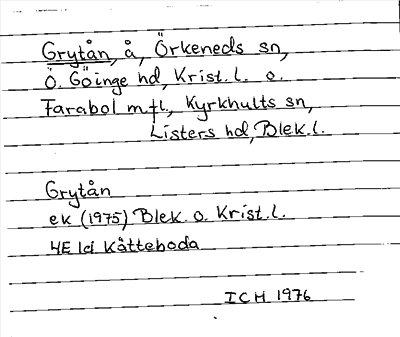 Grytån, å, Örkeneds sn,
Ö. Göinge hd, Krist. l. o.
Farabol m.fl., Kyrkhults sn,
Listers hd, Blek. l.
Grytån
ek (1975) Blek. o. Krist. l.
4E 1d Kåtteboda
ICH 1976